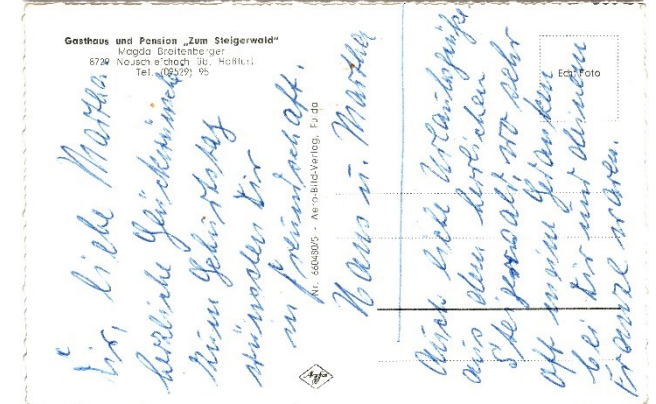 Gasthaus und Pension „Zum Steigerwald"
Magda Breitenberger
8729 Neuschleichach üb. Haßfurt
Tel. (09529) 95
Echt Foto
Nr. 660480/5 - Aero-Bild-Verlag, Fulda
Agfa
Dir, liebe Martha
herzliche Glückwünsche
zum Geburtstag
wünschen Dir
in Freundschaft.
Hans u. Martha
Auch liebe Urlaubsgrüße
aus dem herlichen
Steigerwald wo sehr
oft meine Gedanken
bei Dir und deinem
Franzl waren.